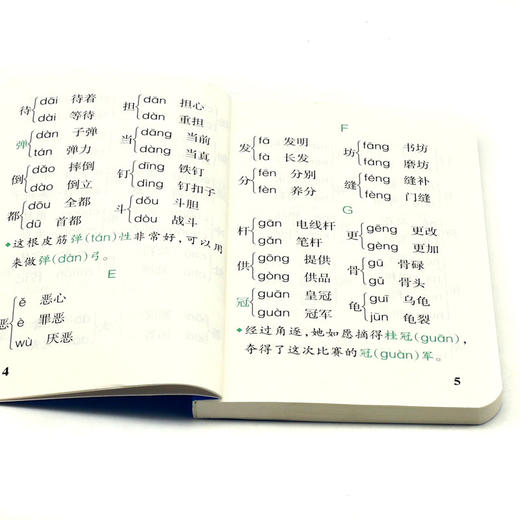 待 dāi 待着
dài 等待
弹 dàn 子弹
tán 弹力
倒 dǎo 摔倒
dào 倒立
都 dōu 全都
dū 首都
担 dān 担心
dàn 重担
当 dāng 当前
dàng 当真
钉 dīng 铁钉
dìng 钉扣子
斗 dǒu 斗胆
dòu 战斗
这根皮筋弹(tán)性非常好,可以用
来做弹(dàn)弓。
E
恶 ě 恶心
è 罪恶
wù 厌恶
4
F
发 fā 发明
fà 长发
分 fēn 分别
fèn 养分
坊 fāng 书坊
fáng 磨坊
缝 féng 缝补
fèng 门缝
G
杆 gān 电线杆
gǎn 笔杆
供 gōng 提供
gòng 供品
冠 guān 皇冠
guàn 冠军
更 gēng 更改
gèng 更加
骨 gū 骨碌
gǔ 骨头
龟 guī 乌龟
jūn 龟裂
经过角逐,她如愿摘得桂冠(guān),
夺得了这次比赛的冠(guàn)军。
5